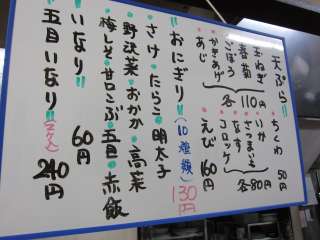 天ぷら
玉ねぎ
春菊
ごぼう
かきあげ
あじ
各110円
ちくわ 50円
いか
さつまいも
なす
コロッケ
各80円
えび 160円
おにぎり(10種類) 130円
さけ・たらこ・明太子
野沢菜・おかか・高菜
梅しそ・甘口こぶ・五目・赤飯
いなり 60円
五目いなり(2ケ入) 240円